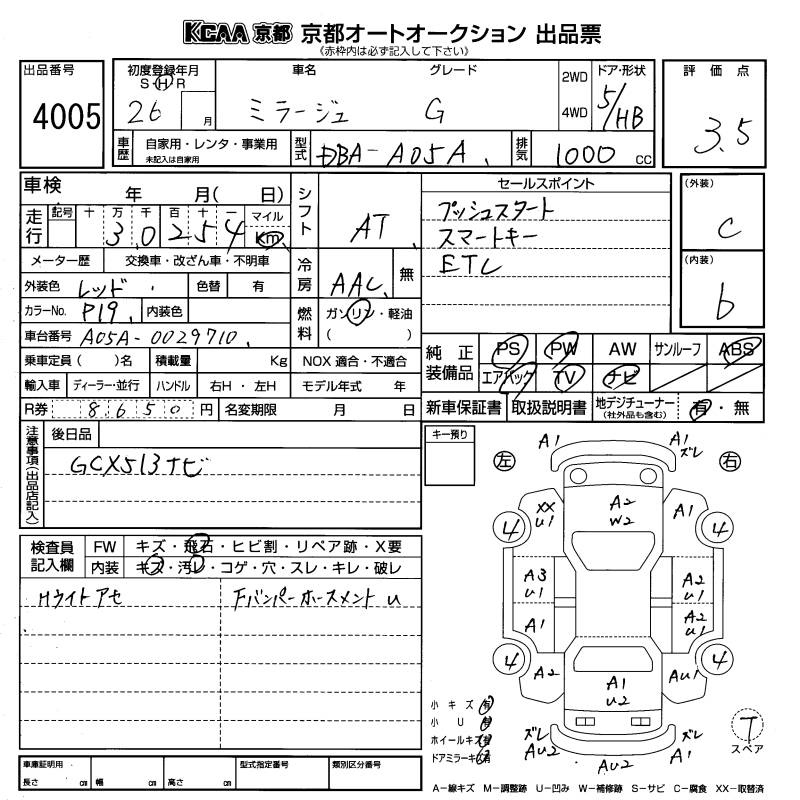 KCAA 京都 京都オートオークション 出品票
《赤枠内は必ず記入して下さい》
出品番号
4005
初度登録年月
S H R
26 月
車名
ミラージュ
グレード
G
2WD
4WD
ドア・形状
5/HB
評価点
3.5
車歴
自家用・レンタ・事業用
未記入は自家用
型式
DBA-A05A
排気
1000 cc
車検 年 月( 日)
走行
記号 十 万 千 百 十 一 マイル
3 0 2 5 4 Km
シフト
AT
セールスポイント
プッシュスタート
スマートキー
ETC
(外装)
C
(内装)
b
メーター歴 交換車・改ざん車・不明車
外装色 レッド 色替 有
カラーNo. P19 内装色
車台番号 A05A-0029710
冷房
AAC 無
燃料
ガソリン・軽油
( )
乗車定員 ( )名 積載量 Kg NOX 適合・不適合
輸入車 ディーラー・並行 ハンドル 右H・左H モデル年式 年
R券 8650 円 名変期限 月 日
純正装備品
PS PW AW サンルーフ ABS
エアバッグ TV ナビ
新車保証書 取扱説明書 地デジチューナー (社外品も含む) 有・無
注意事項(出品店記入)
後日品
GCX513ナビ
キー預り
検査員記入欄
FW キズ・飛石・ヒビ割・リペア跡・X要
内装 キズ・汚レ・コゲ・穴・スレ・キレ・破レ
Hライトアセ
Fバンパーホースメント u
左
右
A1
A1
ズレ
XX
U1
A2
W2
A1
4
4
A3
U1
A2
U1
A1
A2
U1
4
4
A2
A1
U2
AU1
ズレ
AU2
AU2
ズレ
A1
小キズ 有
小U 有
ホイールキズ 有
ドアミラーキズ 有
T
スペア
車庫証明用
長さ cm 幅 cm 高さ cm
型式指定番号
類別区分番号
A-線キズ M-調整跡 U-凹み W-補修跡 S-サビ C-腐食 XX-取替済